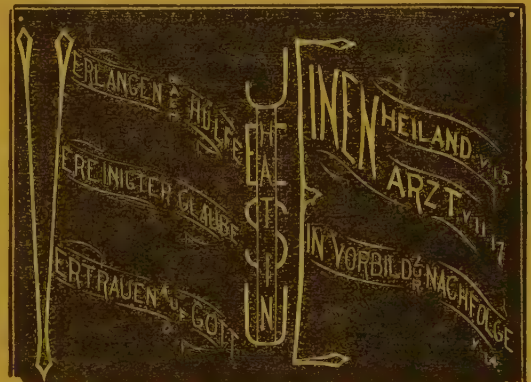 VERLANGEN NACH HULFE
VEREINIGTER GLAUBE
VERTRAUEN AUF GOTT
HAT IN
JESU
EINEN HEILAND
ARZT V. 11, 17
EIN VORBILD NACHFOLGE